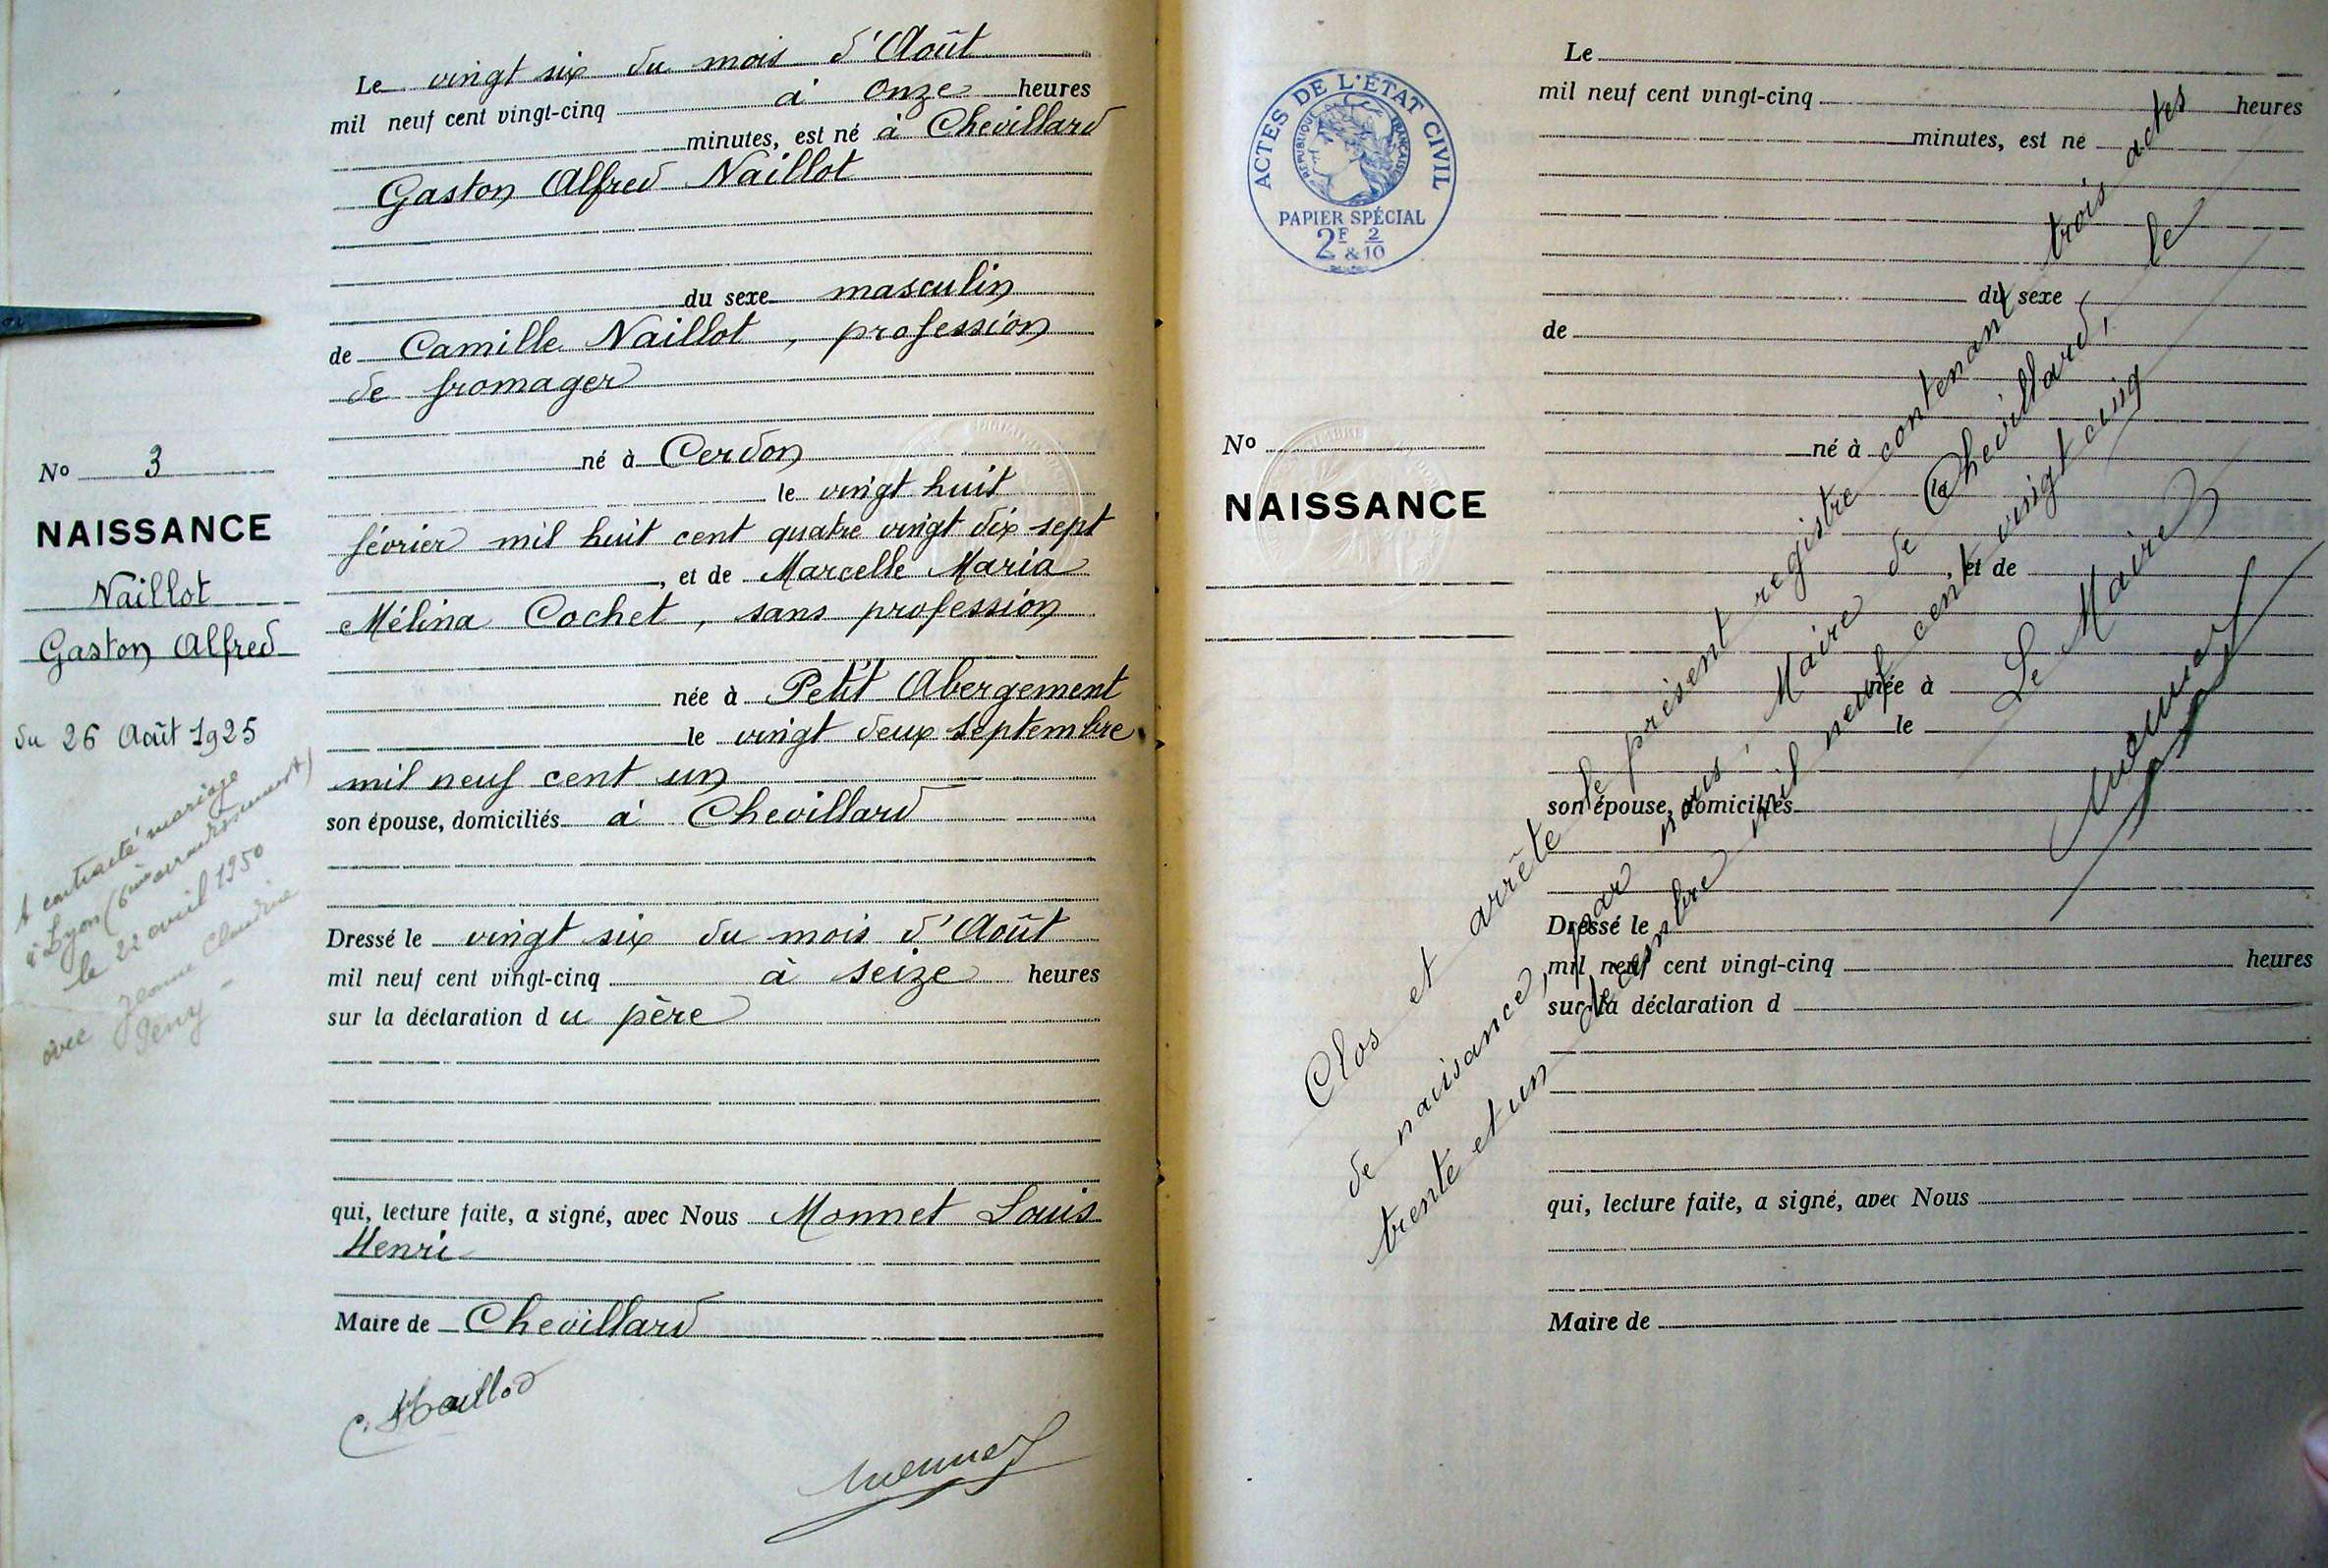 Le vingt six du mois d'Août
mil neuf cent vingt-cinq à onze heures
minutes, est né à Chevillard
Gaston Alfred Naillot
du sexe masculin
de Camille Naillot, profession
de fromager
né à Cerdon
le vingt huit
février mil huit cent quatre vingt dix sept
, et de Marcelle Maria
Mélina Cochet, sans profession
née à Petit Abergement
le vingt deux septembre
mil neuf cent un
son épouse, domiciliés à Chevillard
Dressé le vingt six du mois d'Août
mil neuf cent vingt-cinq à seize heures
sur la déclaration du père
qui, lecture faite, a signé, avec Nous Monnet Louis
Henri
Maire de Chevillard
C. Naillod
Monnet
No 3
NAISSANCE
Naillot
Gaston Alfred
du 26 Août 1925
A contracté mariage
à Lyon (6ème arrondissement)
le 22 avril 1950
avec Jeanne Claudine
ACTES DE L'ÉTAT CIVIL
RÉPUBLIQUE FRANÇAISE
PAPIER SPÉCIAL
2F & 2/10
No
NAISSANCE
Le
mil neuf cent vingt-cinq heures
minutes, est né
du sexe
de
né à
le
, et de
née à
le
son épouse, domiciliés
Dressé le
mil neuf cent vingt-cinq heures
sur la déclaration d
qui, lecture faite, a signé, avec Nous
Maire de
Clos et arrêté le présent registre contenant trois actes
de naissance, par nous, Maire de Chevillard, le
trente et un décembre mil neuf cent vingt cinq
Le Maire
Monnet